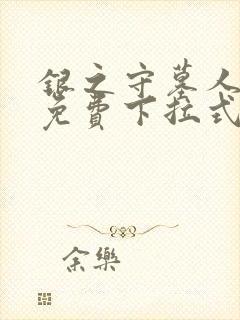 银之守墓人
免费下拉式
余樂